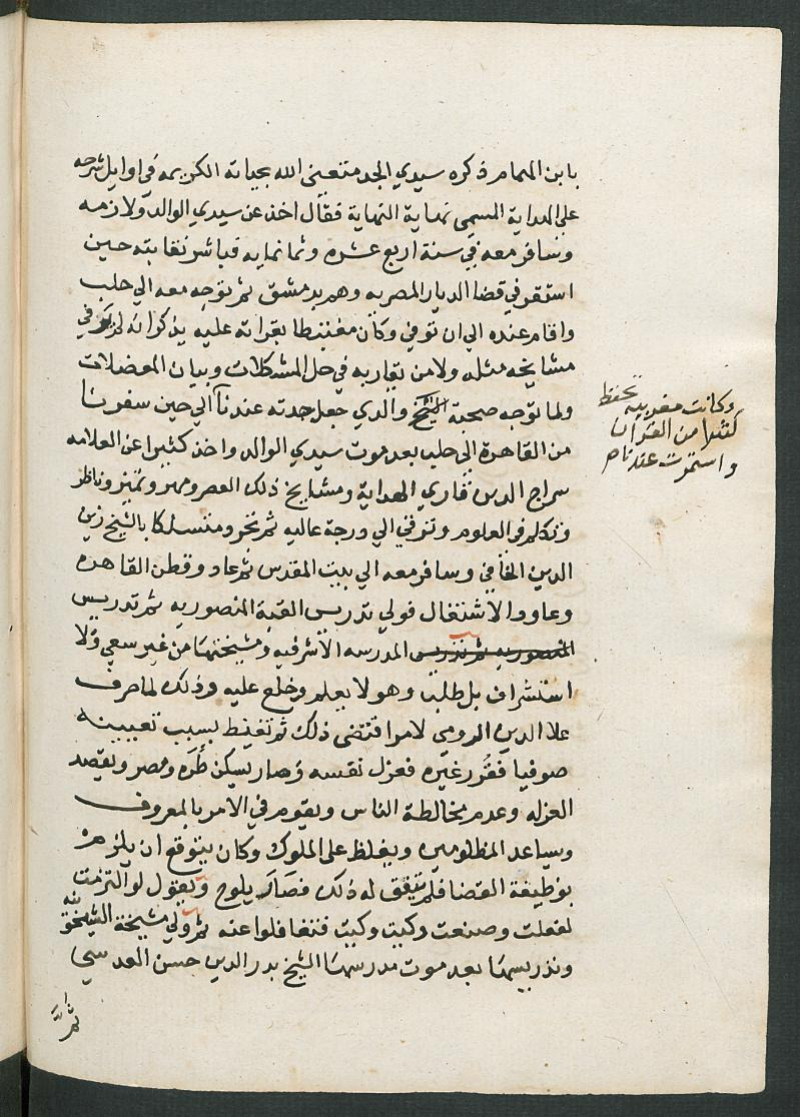 بابن الهمام ذكره سيدي الجد متعني الله بحياته الكريمه في اوايل شرحه
على الهداية المسمى نهاية النهاية فقال اخذ عن سيدي الوالد ولازمه
وسافر معه في سنة اربع عشره وثمانمايه فباشر نقابته حين
استقر في قضا الديار المصريه وهم بدمشق ثم توجه معه الي حلب
واقام عنده الي ان توفي وكان مغتبطا بقراته عليه يذكر انه لم في
مشايخه مثله ولا من يقاربه في حل المشكلات وبيان المعضلات
ولما توجه صحبة الشيخ والدي جعل جدته عندنا الي حين سفرنا
من القاهرة الي حلب بعد موت سيدي الوالد واخذ كثيرا عن العلامه
سراج الدين قاري الهداية ومشايخ ذلك العصر ومهر وتميز وناظر
وتكلم في العلوم وترقي الي درجة عاليه ثم نحو متسلكا بالشيخ زين
الدين الخافي وسافر معه الي بيت المقدس ثم عاد وقطن القاهره
وعاود الاشتغال فولي تدريس القبة المنصوريه ثم تدريس
المنصوريه ثم تدريس المدرسه الاشرفيه ومشيختها من غير سعي ولا
استشراف بل طلب وهو لا يعلم وخلع عليه وذلك لما صرف
علا الدين الرومي لامر اقتضى ذلك ثم تغيظ بسبب تعيينه
صوفيا فقُرر غيره فعزل نفسه وصار يسكن طره ومصر ويقصد
العزله وعدم مخالطة الناس ويقوم في الامر بالمعروف
ويساعد المظلومين ويغلظ على الملوك وكان يتوقع ان يلزموه
بوظيفة القضا فلم يتفق له ذلك فصار يلوح ويقول لو الزمت
لفعلت وصنعت وكيت وكيت فتغافلوا عنه ثم ولي مشيخة الشيخونيه
وتدريسها بعد موت مدرسها الشيخ بدر الدين حسن القدسي
وكانت مغربيه تحفظ
كثيرا من القران
واستمرت عندنا